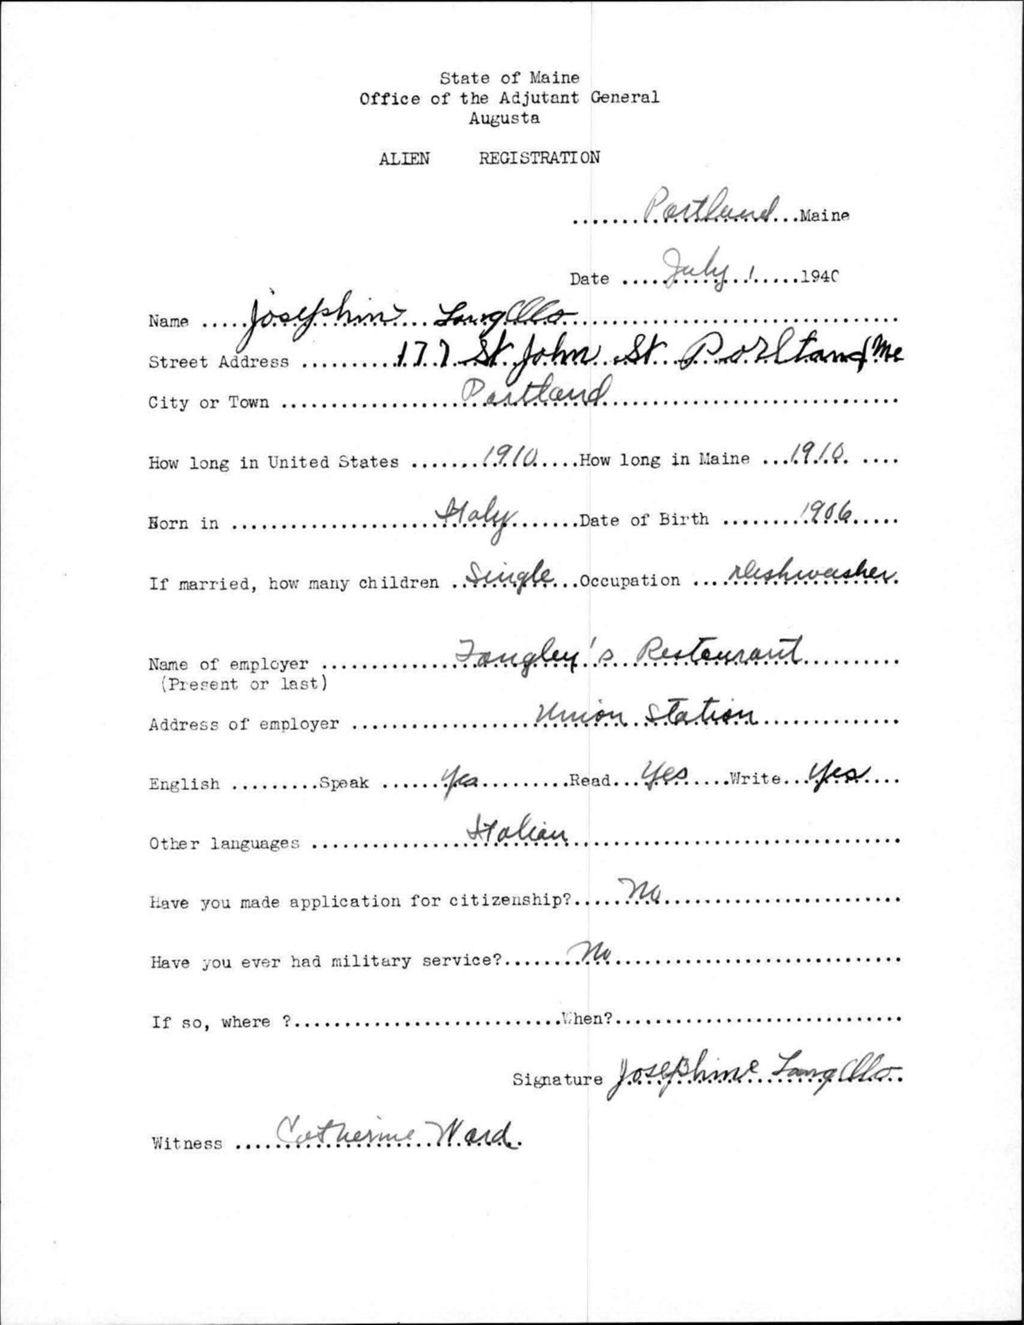 State of Maine
Office of the Adjutant General
Augusta
ALIEN REGISTRATION
.......Portland...Maine
Date ....July 1.....1940
Name .....Josephine LangEllo................................
Street Address ..........177 St John St Porltand Me
City or Town ..................Portland.............................
How long in United States .......1910.....How long in Maine ...1910. ....
Born in ....................Italy.......Date of Birth ........1906.....
If married, how many children ..Single...Occupation ....dishwasher.
Name of employer .............. Restaurant..........
(Present or last)
Address of employer ..................Union Station..............
English .........Speak ......Yes.........Read...Yes....Write...Yes....
Other languages ................Italian.................................
Have you made application for citizenship?.....No........................
Have you ever had military service?.......No.............................
If so, where ?...........................When?.............................
Signature Josephine LangEllo
Witness ....Catherine Ward.